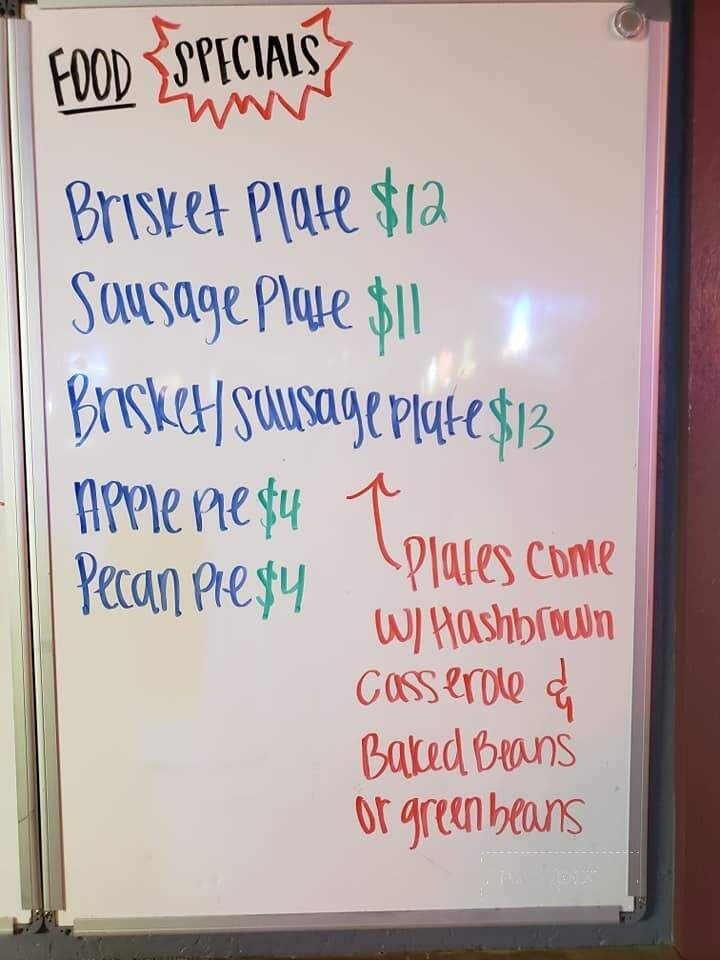 FOOD SPECIALS
Brisket Plate $12
Sausage Plate $11
Brisket/sausage plate $13
Apple pie $4
Pecan pie $4
Plates come
w/ Hashbrown
casserole &
Baked Beans
or green beans